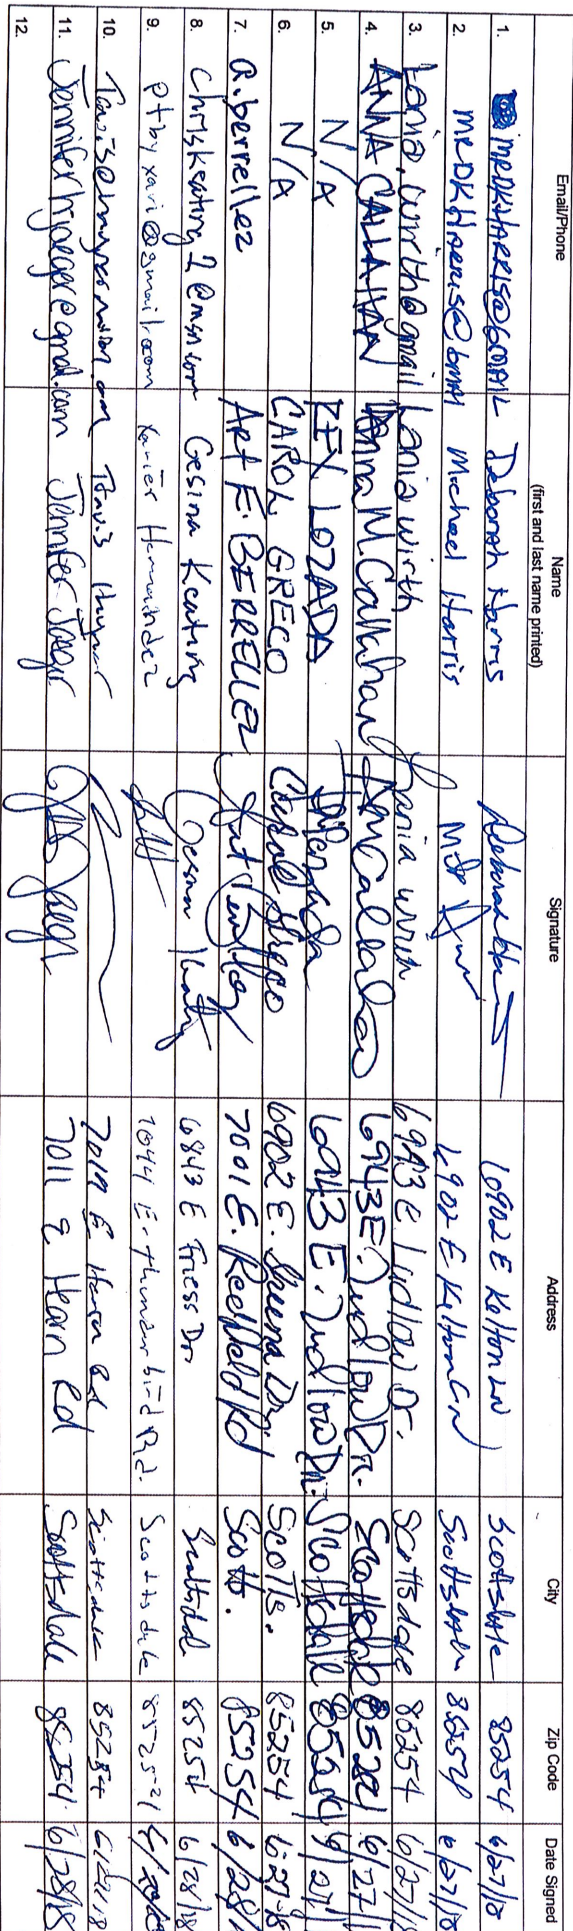 Email/Phone Name (first and last name printed) Signature Address City Zip Code Date Signed
1. MRDKHARRIS@GMAIL Deborah Harris 6902 E Kelton LN Scottsdale 85254 6/27/18
2. MRDKHARRIS@GMAI Michael Harris 6902 E Kelton LN Scottsdale 85254 6/27/18
3. Lania.wirth@gmail Lania wirth Lania wirth 6943 E. Ludlow Dr. Scottsdale 85254 6/27/18
4. ANNA CALLAHAN Anna M. Callahan AM Callahan 6943 E. Ludlow Dr. Scottsdale 85254 6/27/1
5. N/A REX LOZADA 6943 E. Ludlow Dr. Scottsdale 85254 6/27/
6. N/A CAROL GRECO Carol Greco 6902 E. Sheena Dr. Scotts. 85254 6-27-18
7. a.berrellez Art E. BERRELLEZ 7001 E. Redfield Rd Scott. 85254 6/28/
8. Chriskeating2@msn.com Gesina Keating Gesina Keating 6843 E Friess Dr Scottsdal 85254 6/28/18
9. ptbyxavi@gmail.com Xavier Hernandez 7044 E. thunderbird Rd. Scottsdale
10. Travis 7019 E. Hearn Rd Scottsdale 85254
11. Jenniferhjaeger@gmail.com Jennifer Jaeger 7011 E Hearn Rd Scottsdale 85254 6/28/18
12.